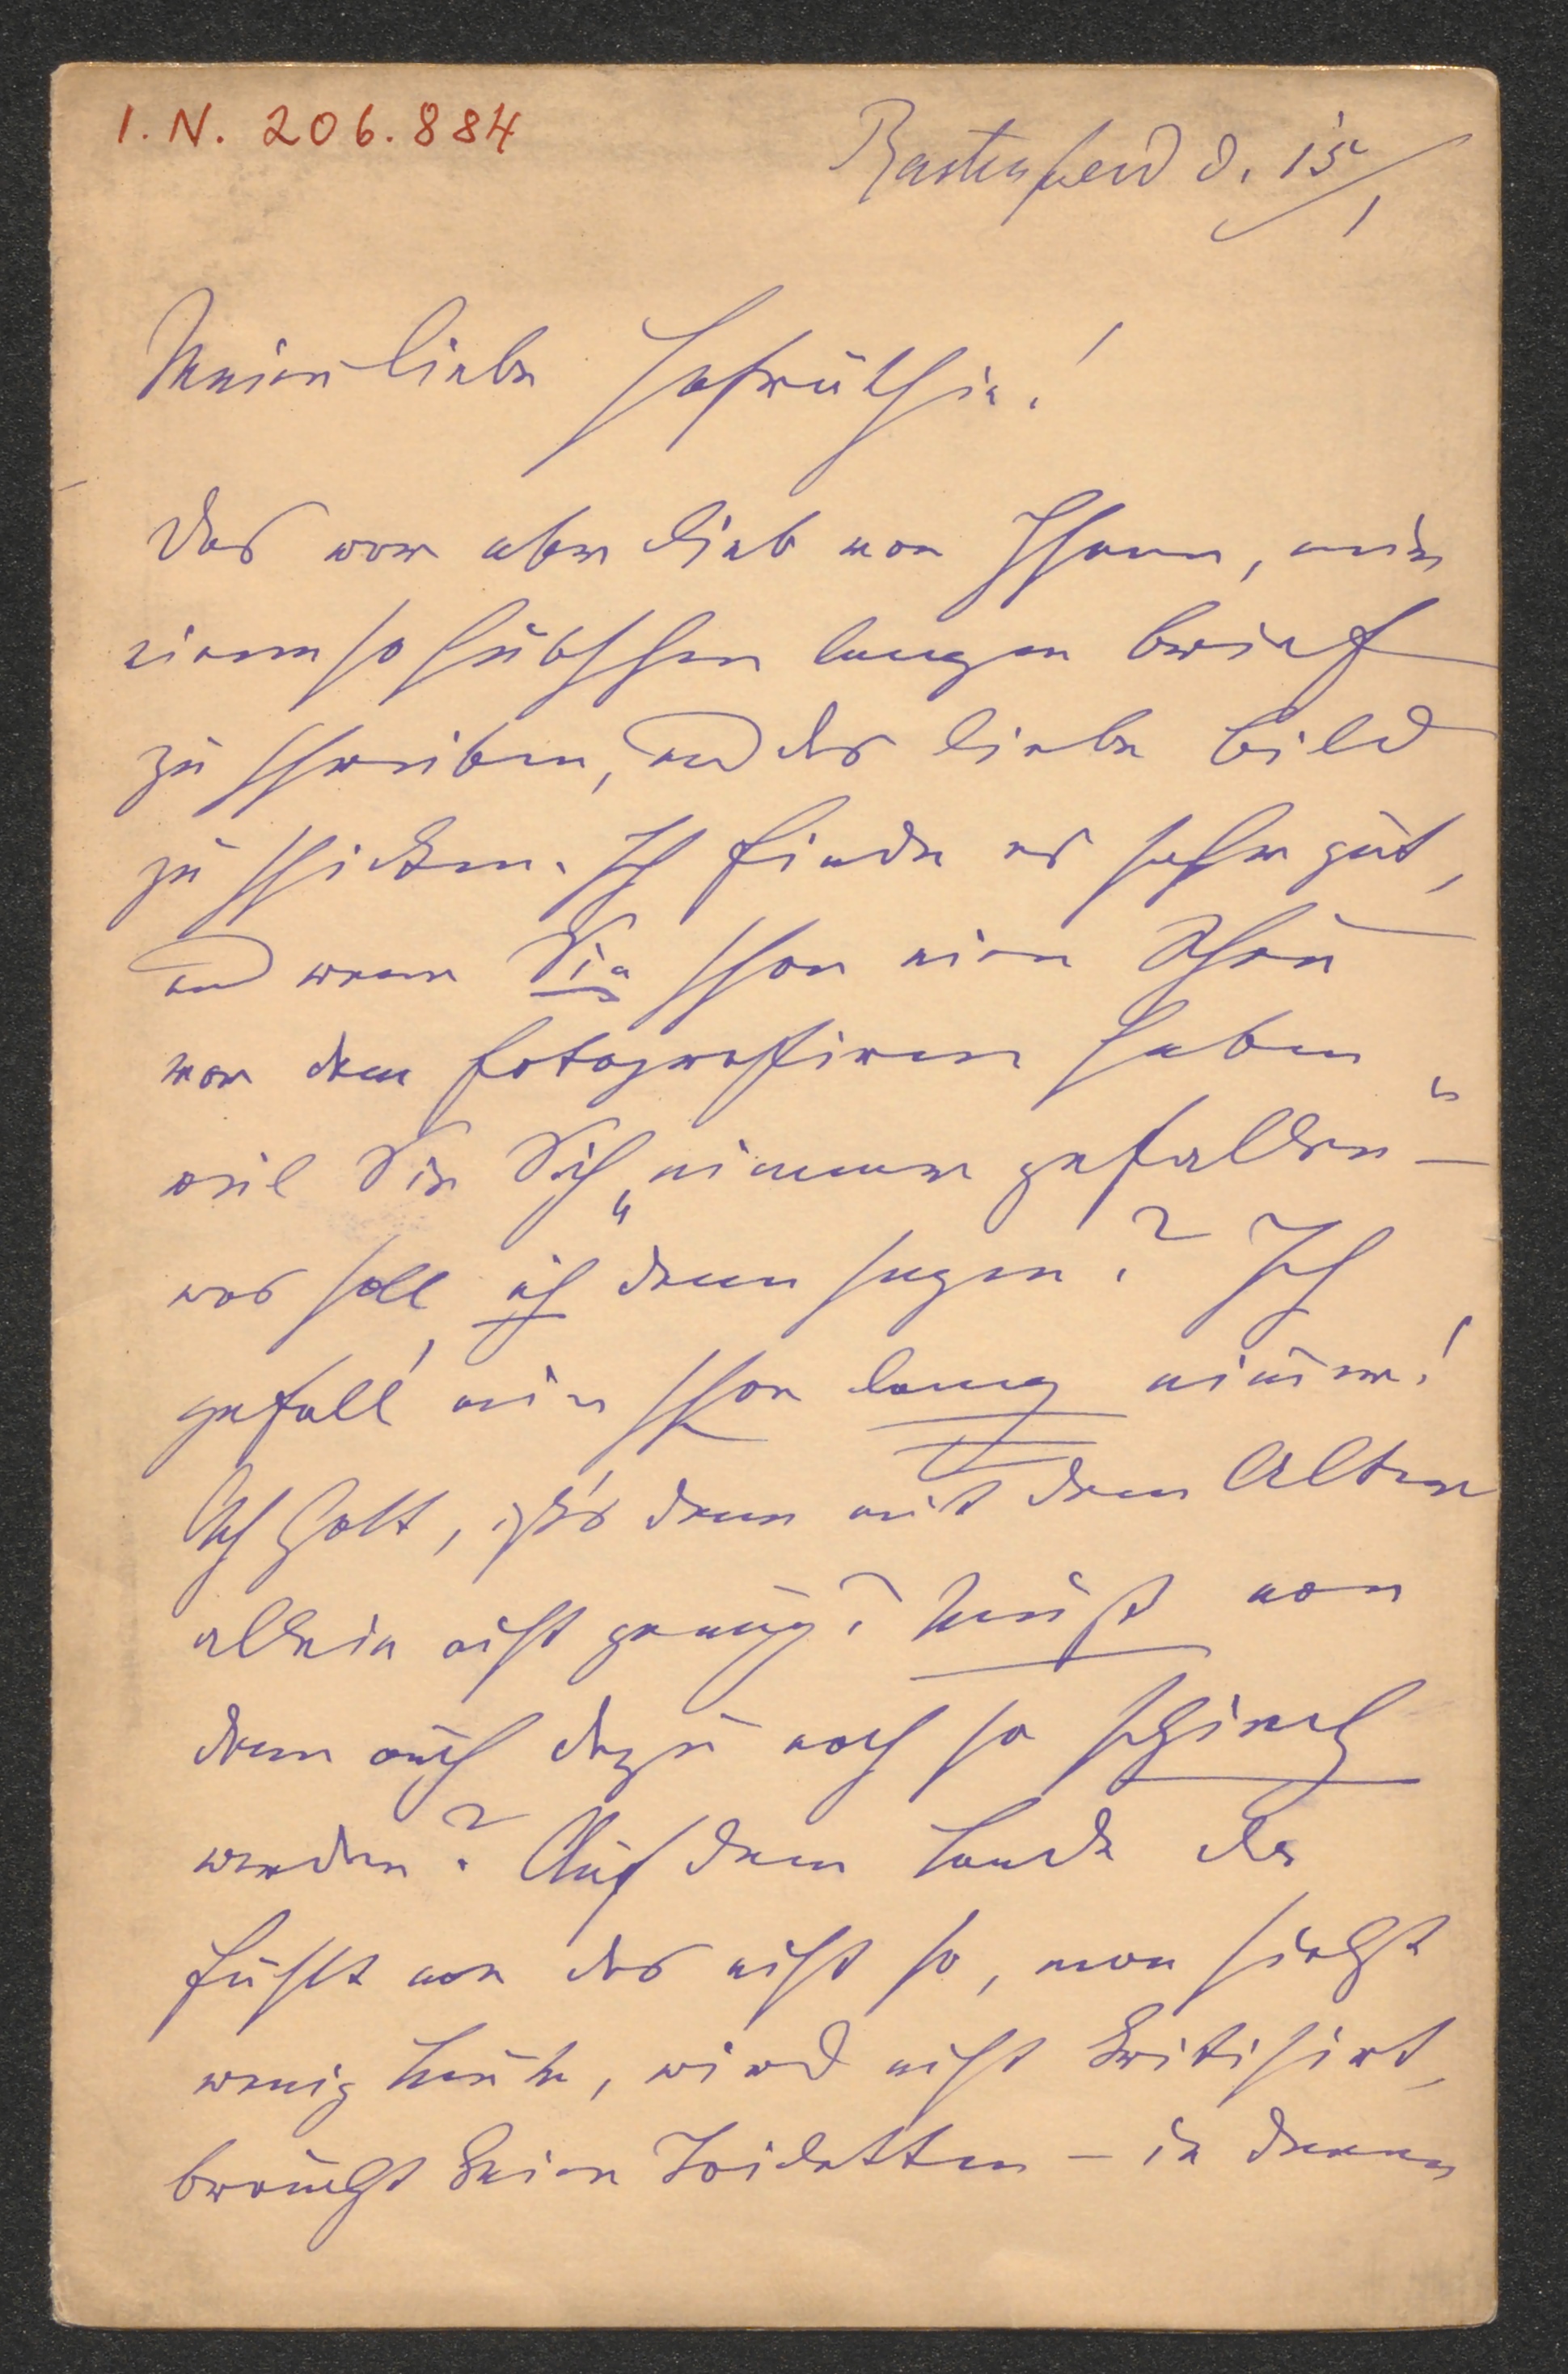 I. N. 206.884
Rastenfeld d. 15/1
Meine liebe Hofräthin!
Das war aber lieb von Ihnen, mir
einen so hübschen langen Brief
zu schreiben, und das liebe Bild
zu schicken. Ich finde es sehr gut,
und wenn Sie schon eine Scheu
vor dem fotografiren haben
weil Sie Sich „nimmer gefallen“ –
was soll ich denn sagen? Ich
gefall' mir schon lang nimmer!
Ach Gott, ist's denn mit dem Alter
allein nicht genug? Muß man
denn auch dazu noch so schiech
werden? Auf dem Lande da
fühlt man das nicht so, man sieht
wenig Leute, wird nicht kritisirt,
braucht keine Toiletten – in denen